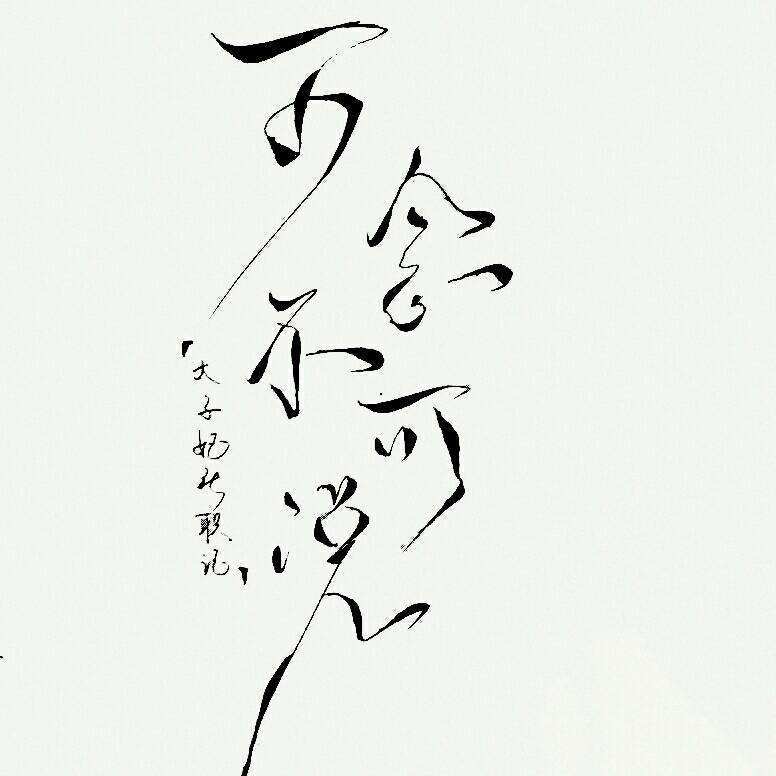 可念不可说
「太子妃升职记」